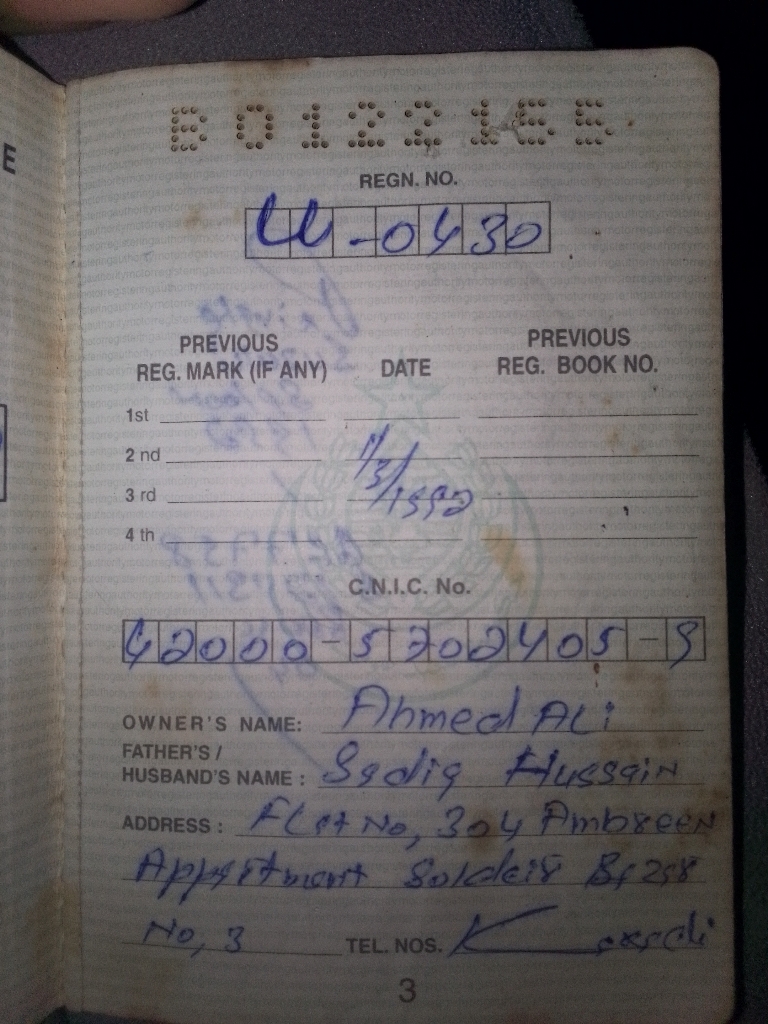 E
B0122155
REGN. NO.
U U - 0 4 3 0
PREVIOUS REG. MARK (IF ANY) DATE PREVIOUS REG. BOOK NO.
1st
2 nd
3 rd 1/3/1992
4 th
C.N.I.C. No.
42000-5702405-9
OWNER'S NAME: Ahmed ALi
FATHER'S /
HUSBAND'S NAME : Sadiq Hussain
ADDRESS : FLat No, 304 AmbreeN
Appartment Soldeir Bazar
No, 3 TEL. NOS. Karachi
3